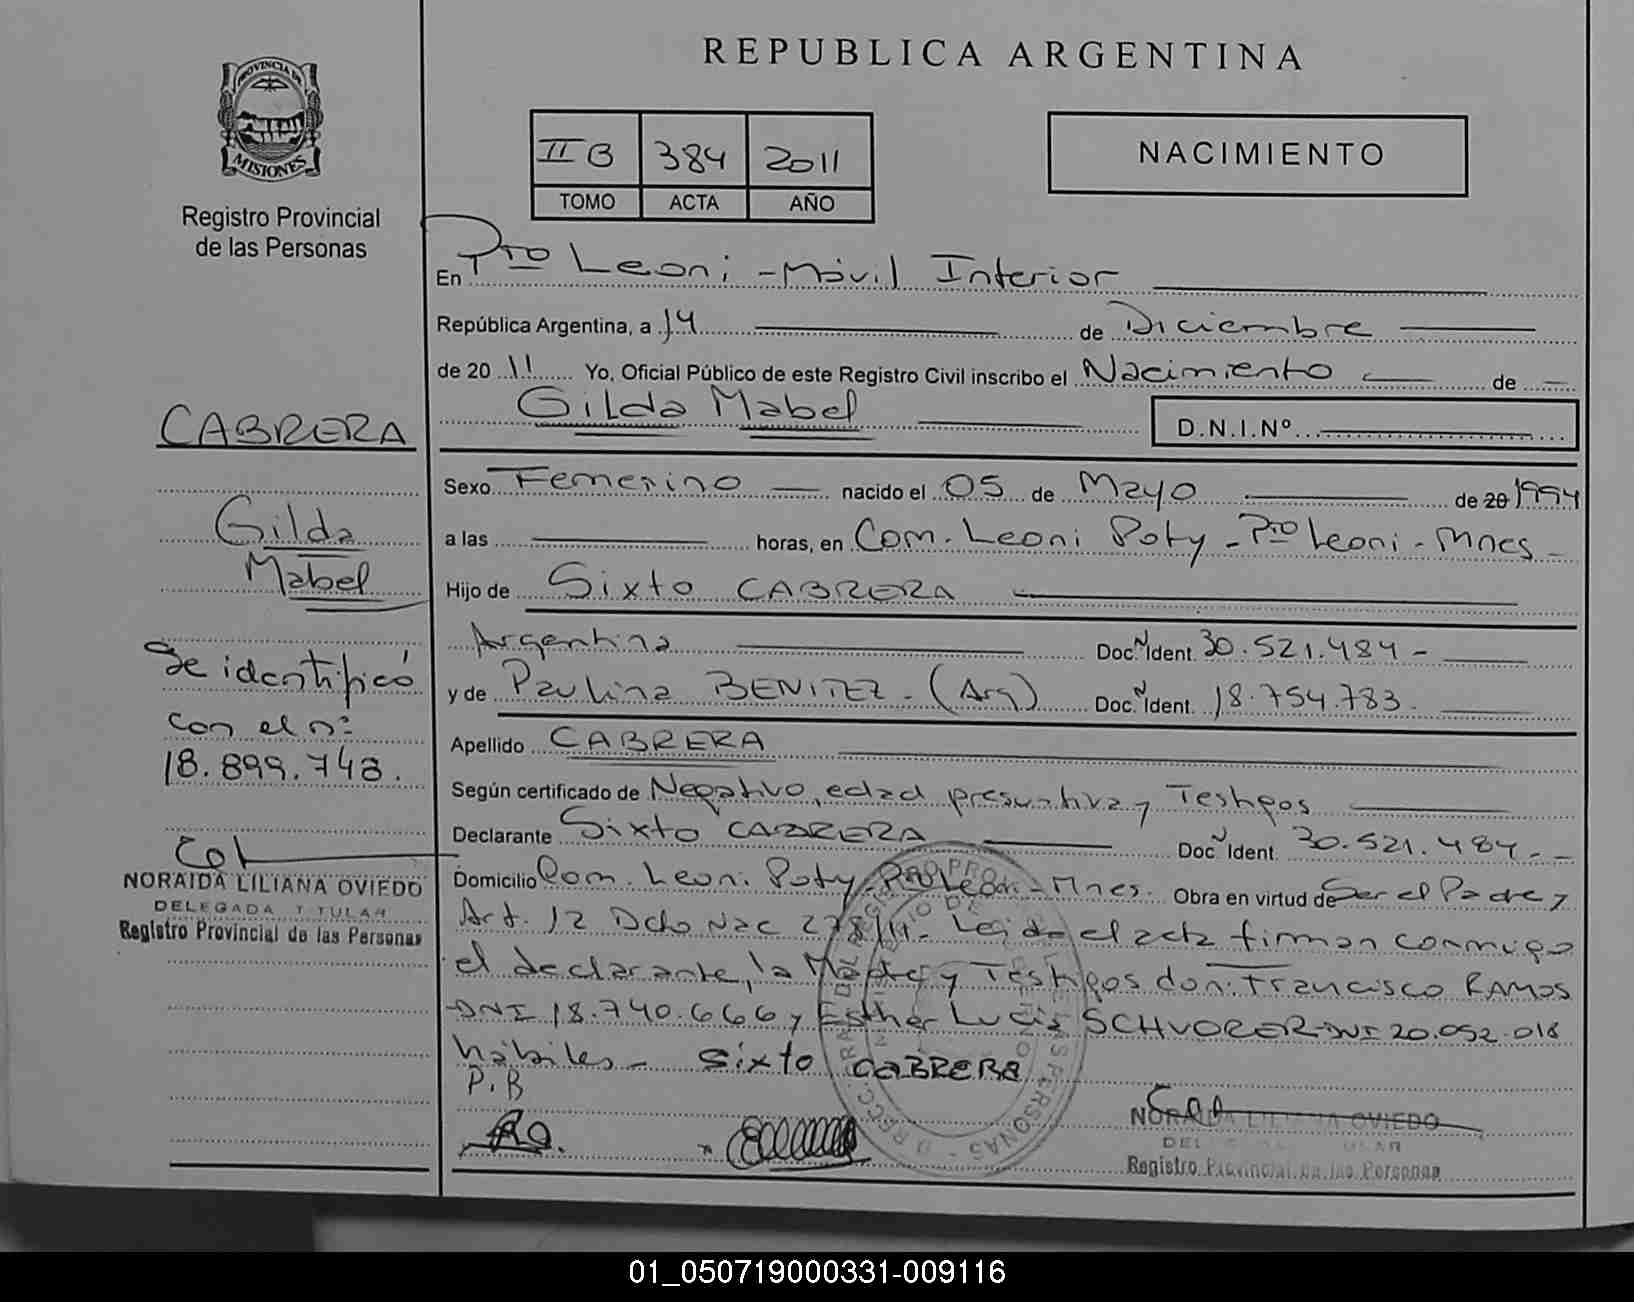 REPUBLICA ARGENTINA
PROVINCIA DE
MISIONES
Registro Provincial
de las Personas
IIB 384 2011
TOMO ACTA AÑO
NACIMIENTO
En Pto Leoni - Móvil Interior
República Argentina, a 14 de Diciembre
de 2011 Yo, Oficial Público de este Registro Civil inscribo el Nacimiento de
Gilda Mabel
D.N.I.Nº
CABRERA
Gilda
Mabel
Se identificó
con el nº
18.899.748.
NORAIDA LILIANA OVIEDO
DELEGADA TITULAR
Registro Provincial de las Personas
Sexo Femenino nacido el 05 de Mayo de 20 1994
a las horas, en Com. Leoni Poty - Pto Leoni - Mnes -
Hijo de Sixto CABRERA
Argentina Doc. Ident. 30.521.484 -
y de Paulina BENITEZ - (Arg) Doc. Ident. 18.754.783.
Apellido CABRERA
Según certificado de Negativo, edad presuntiva y Testigos
Declarante Sixto CABRERA Doc. Ident. 30.521.484 - -
Domicilio Com. Leoni Poty - Pto Leoni - Mnes. Obra en virtud de Ser el Padre y
Art. 12 Dcto Nac 278/11 - Leida el acta firman conmigo
el declarante, la Madre y Testigos don: Francisco RAMOS
DNI 18.740.666 y Esther Lucia SCHVORER DNI 20.052.018
hábiles - Sixto CABRERA
P.B
NORAIDA LILIANA OVIEDO
Registro Provincial de las Personas
01_050719000331-009116